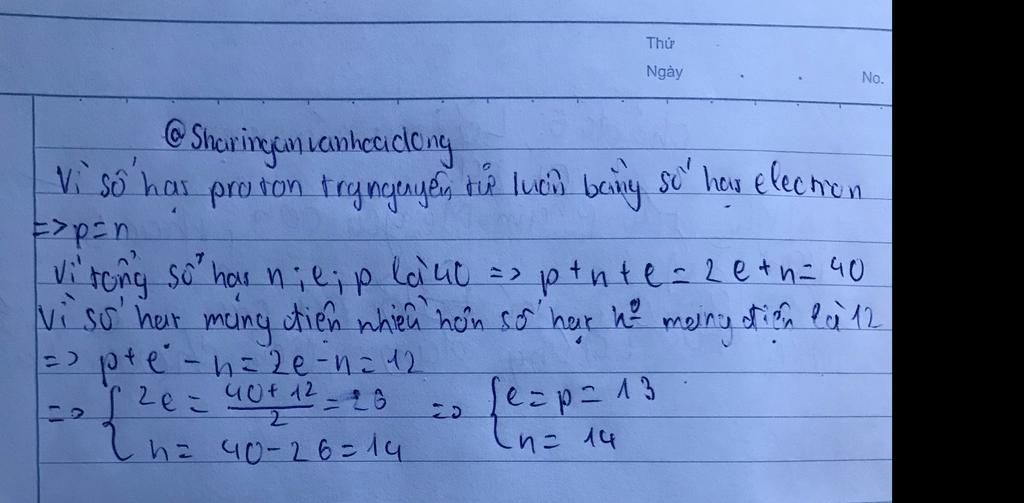 Thứ
Ngày . . No.
@Sharinganvanhoadong
Vì số hạt proton trg nguyên tử luôn bằng số hạt electron
=> p = n
Vì tổng số hạt n; e; p là 40 => p + n + e = 2e + n = 40
Vì số hạt mang điện nhiều hơn số hạt kº mang điện là 12
=> p + e - n = 2e - n = 12
=> { 2e = (40 + 12)/2 = 26 => { e = p = 13
n = 40 - 26 = 14 n = 14